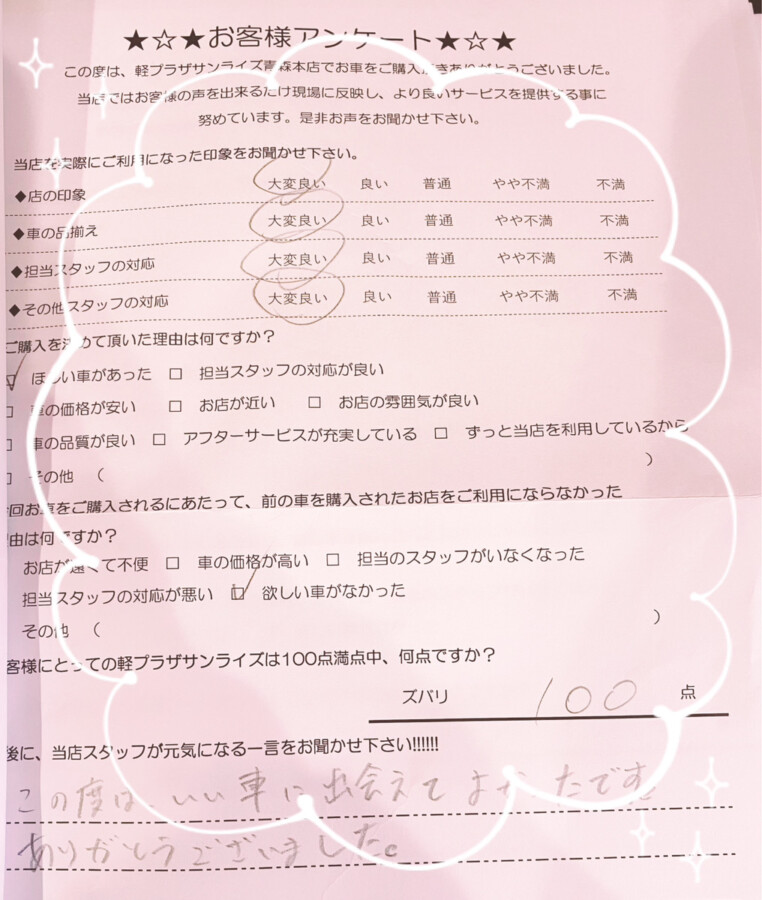 ★☆★お客様アンケート★☆★
この度は、軽プラザサンライズ青森本店でお車をご購入頂きありがとうございました。
当店ではお客様の声を出来るだけ現場に反映し、より良いサービスを提供する事に
努めています。是非お声をお聞かせ下さい。
当店を実際にご利用になった印象をお聞かせ下さい。
◆店の印象 大変良い 良い 普通 やや不満 不満
◆車の品揃え 大変良い 良い 普通 やや不満 不満
◆担当スタッフの対応 大変良い 良い 普通 やや不満 不満
◆その他スタッフの対応 大変良い 良い 普通 やや不満 不満
ご購入を決めて頂いた理由は何ですか？
☑ ほしい車があった □ 担当スタッフの対応が良い
□ 車の価格が安い □ お店が近い □ お店の雰囲気が良い
□ 車の品質が良い □ アフターサービスが充実している □ ずっと当店を利用しているから
□ その他 （ ）
回お車をご購入されるにあたって、前の車を購入されたお店をご利用にならなかった
由は何ですか？
お店が遠くて不便 □ 車の価格が高い □ 担当のスタッフがいなくなった
担当スタッフの対応が悪い ☑ 欲しい車がなかった
その他 （ ）
客様にとっての軽プラザサンライズは100点満点中、何点ですか？
ズバリ 100 点
後に、当店スタッフが元気になる一言をお聞かせ下さい!!!!!!
この度は、いい車に出会えてよかったです
ありがとうございました。